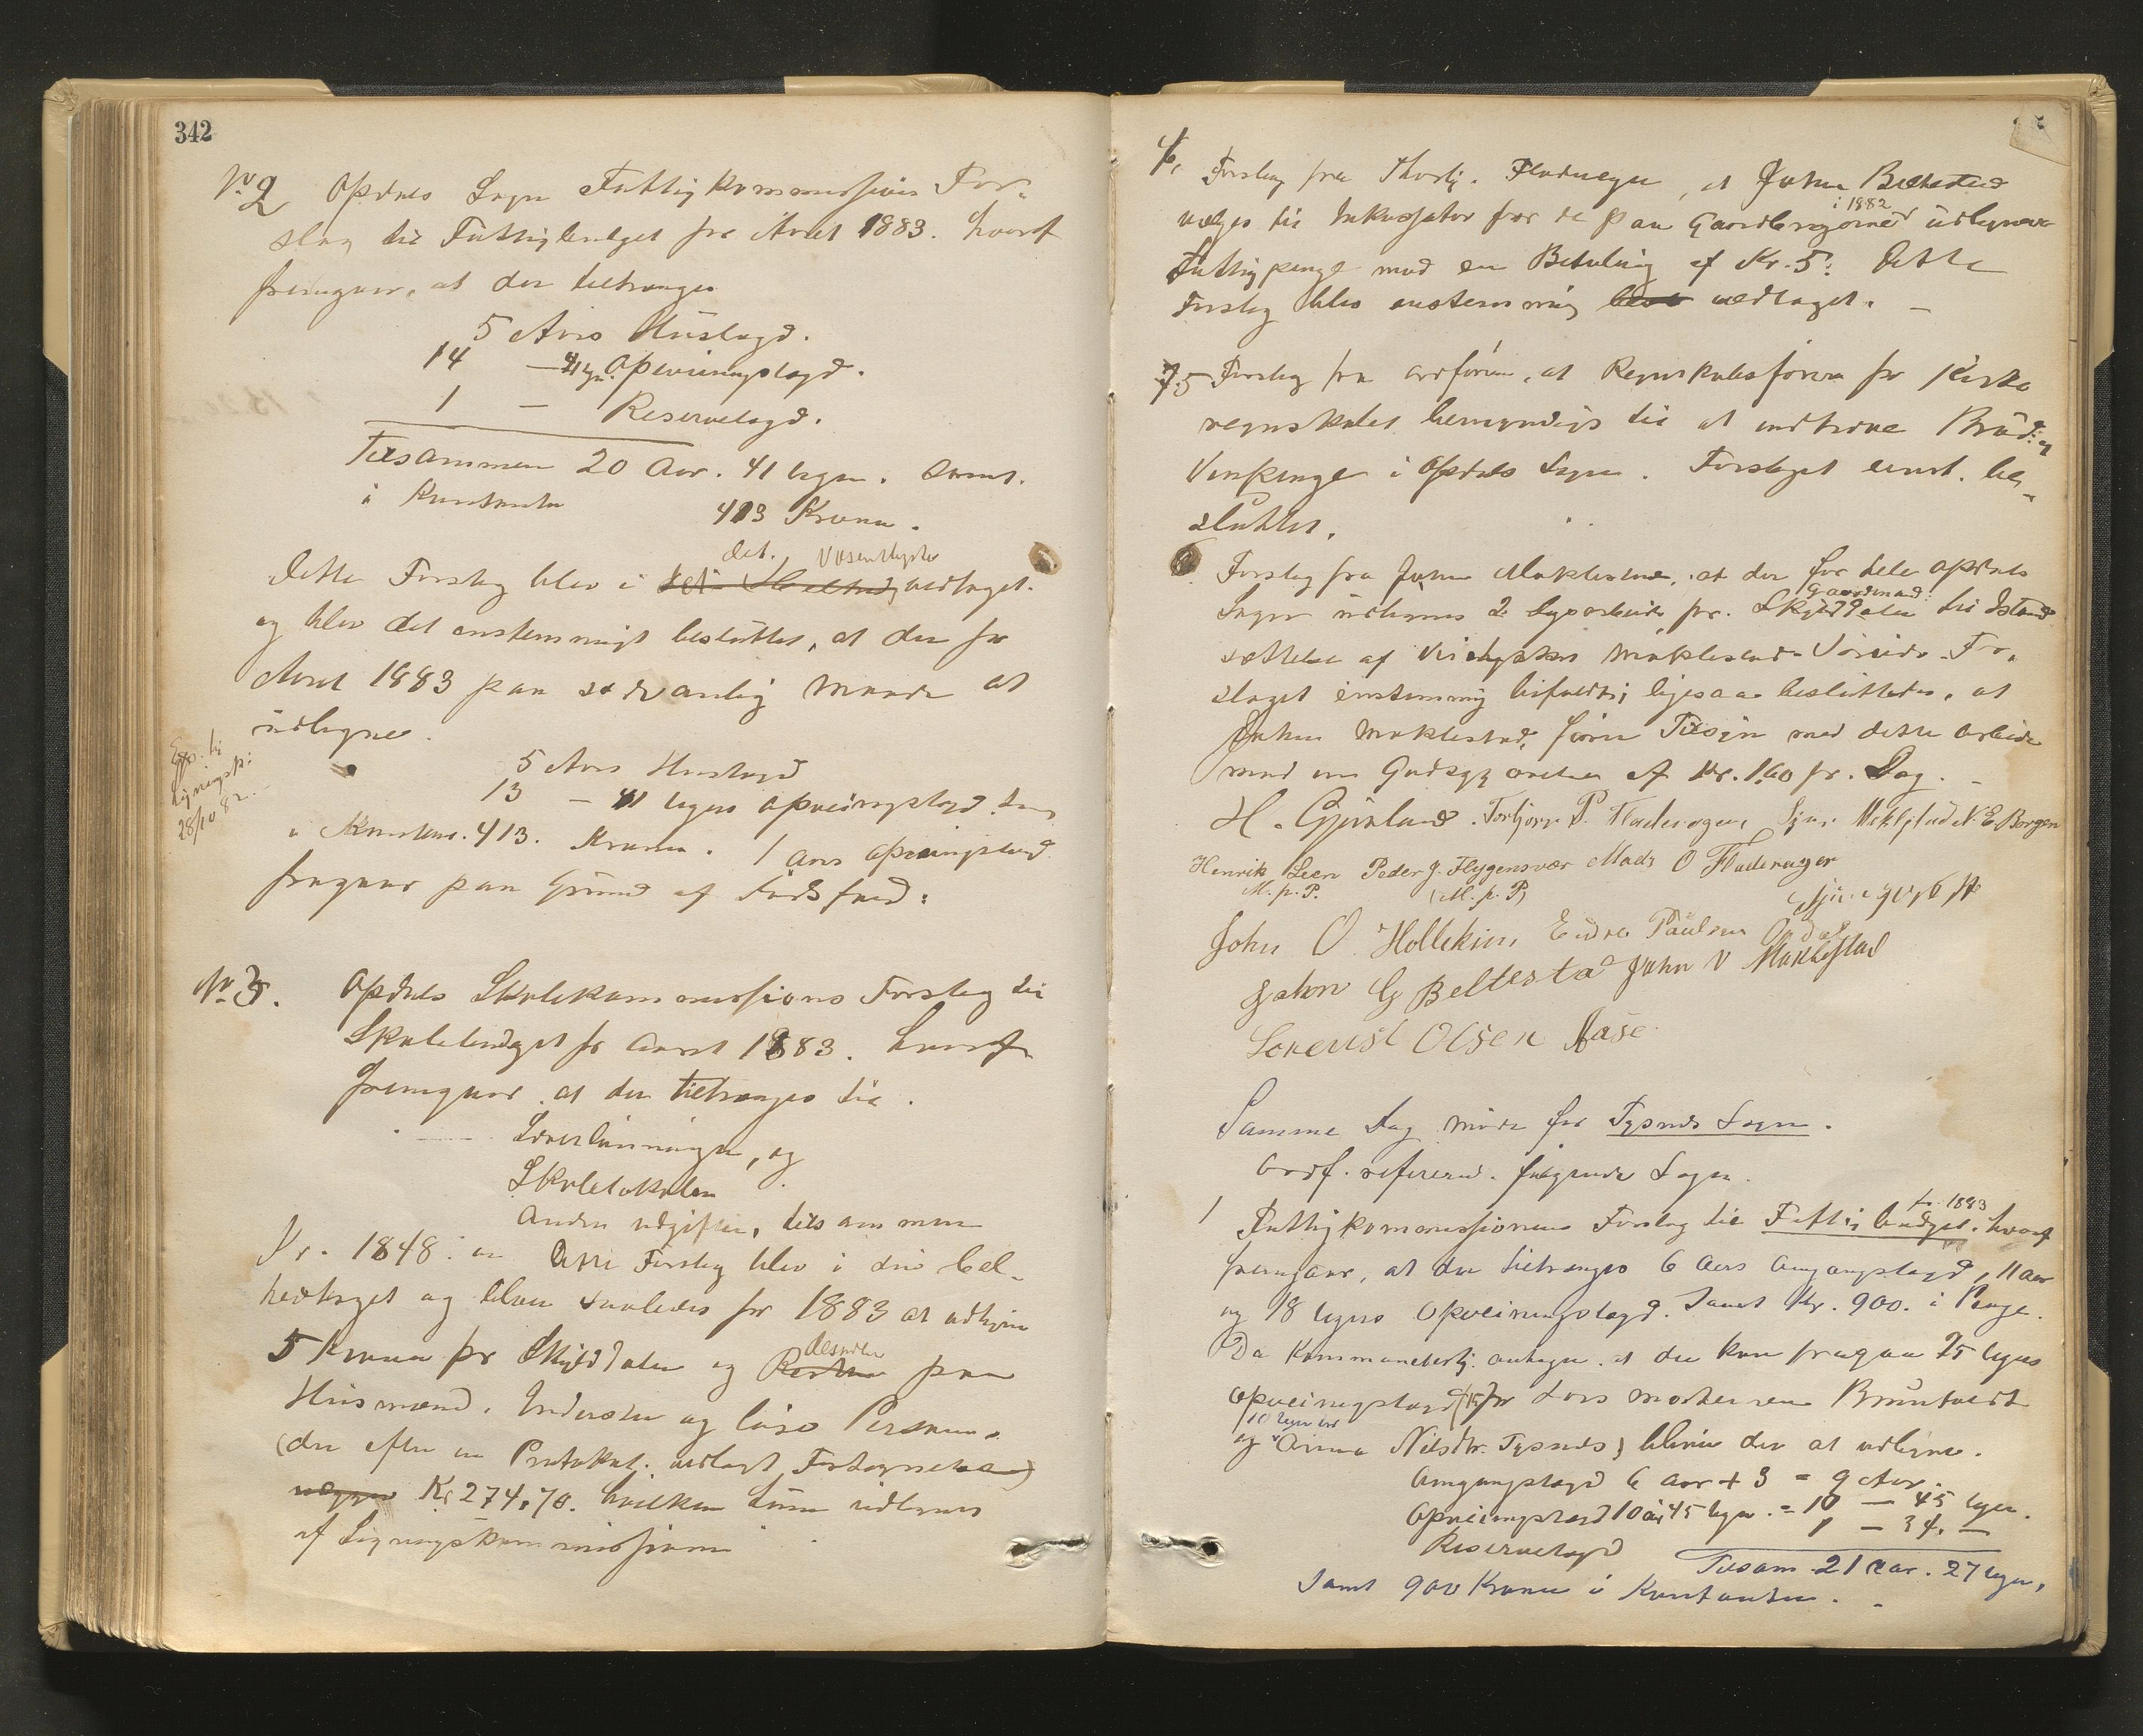 342
No 2 Opdals Sogn Fattigkommissions For-
slag til Fattigbudget for Aaret 1883. hvoraf
fremgaar, at der tiltrænges
5 Aars Huslægd.
14 — 41 Ugr. Opveiningslægd.
1 — Reservelægd.
Tilsammen 20 Aar. 41 Uger. Samt.
i Kontanter 413 Kroner.
det. Væsentligste
Dette Forslag blev i vedtaget.
og blev det enstemmigt besluttet, at der for
Aaret 1883 paa sædvanlig Maade at
udligne.
Exp. til
Ligningsk:
28/10 82.
5 Aars Huslægd
13 — 41 Ugers Opveiningslægd. Samt
i Kontant. 413. Kroner. 1 Aars Opveiningslægd
fragaar paa Grund af Dødsfald:
No 3. Opdals Skolekommissions Forslag til
Skolebudget for Aaret 1883. hvoraf
fremgaar. at der tiltrænges til.
Lærerlønninger, og
Skolelokaler
Andre udgifter, tilsammen
Kr. 1848: Dette Forslag blev i sin hel-
hed vedtaget og bliver saaledes for 1883 at udligne
5 Kroner pr Skylddaler og paa
desuden
Husmænd. Inderster og løse Personer.
(der efter en Protokol. vedlagt Fortegnelse)
Kr 274,70. hvilken Sum udlignes
af Ligningskommissionen
4, Forslag fra Thorbj. Fladeager, at John Beltestad
vælges til Inkassator for de paa Gaardbrugerne i 1882 udlignede
Fattigpenge mod en Betaling af Kr. 5: Dette
Forslag blev enstemmig vedtaget. —
5 Forslag fra Ordføren, at Regnskabsfører for Kirke
regnskabet bemyndiges til at indkræve Brød: og
Vinpenge i Opdals Sogn. Forslaget enst. be-
sluttet.
6 Forslag fra John Maklestad, at der for hele Opdals
Sogn udlignes 2 Dagsarbeide pr. Skylddaler Gaardmand: til Istand
sættelse af Maklestad For-
slaget enstemmig bifaldt; ligesaa besluttedes, at
John Maklestad, fører Tilsyn med dette Arbeide
mod en Godtgjørelse af Kr. 1,60 pr. Dag. —
H. Gjerland. Torbjørn P. Fladeager, N. E. Borgen
Henrik Peder J. Flygensvær Mads O Fladeager
M. p. P. (M. p. P)
John O. Hollekim, Endre Paulsen Opdal
John G Beltestad John V Maklestad
Olsen Aase.
Samme Dag møde for Tysnes Sogn.
Ordf. referered. følgende Sager.
1 Fattigkommissionens Forslag til Fattigbudget for 1883. hvoraf
fremgaar, at der tiltrænges 6 Aars Omgangslægd, 11 Aar
og 18 Ugers Opveiningslægd. Samt Kr. 900. i Penge.
Da Kommunebest. antager. at der kan fragaa 25 Ugers
Opveiningslægd (15 for Lars
(10 Uger for
og Anna Nilsdtr. Tysnes) bliver der at udligne.
Omgangslægd 6 Aar + 3 = 9 Aar.
Opveiningslægd 10 Aar 45 Uger. = 10 — 45 Uger.
Reservelægd 1 — 34. —
Tilsam. 21 Aar. 27 Uger,
Samt 900 Kroner i Kontanter. —